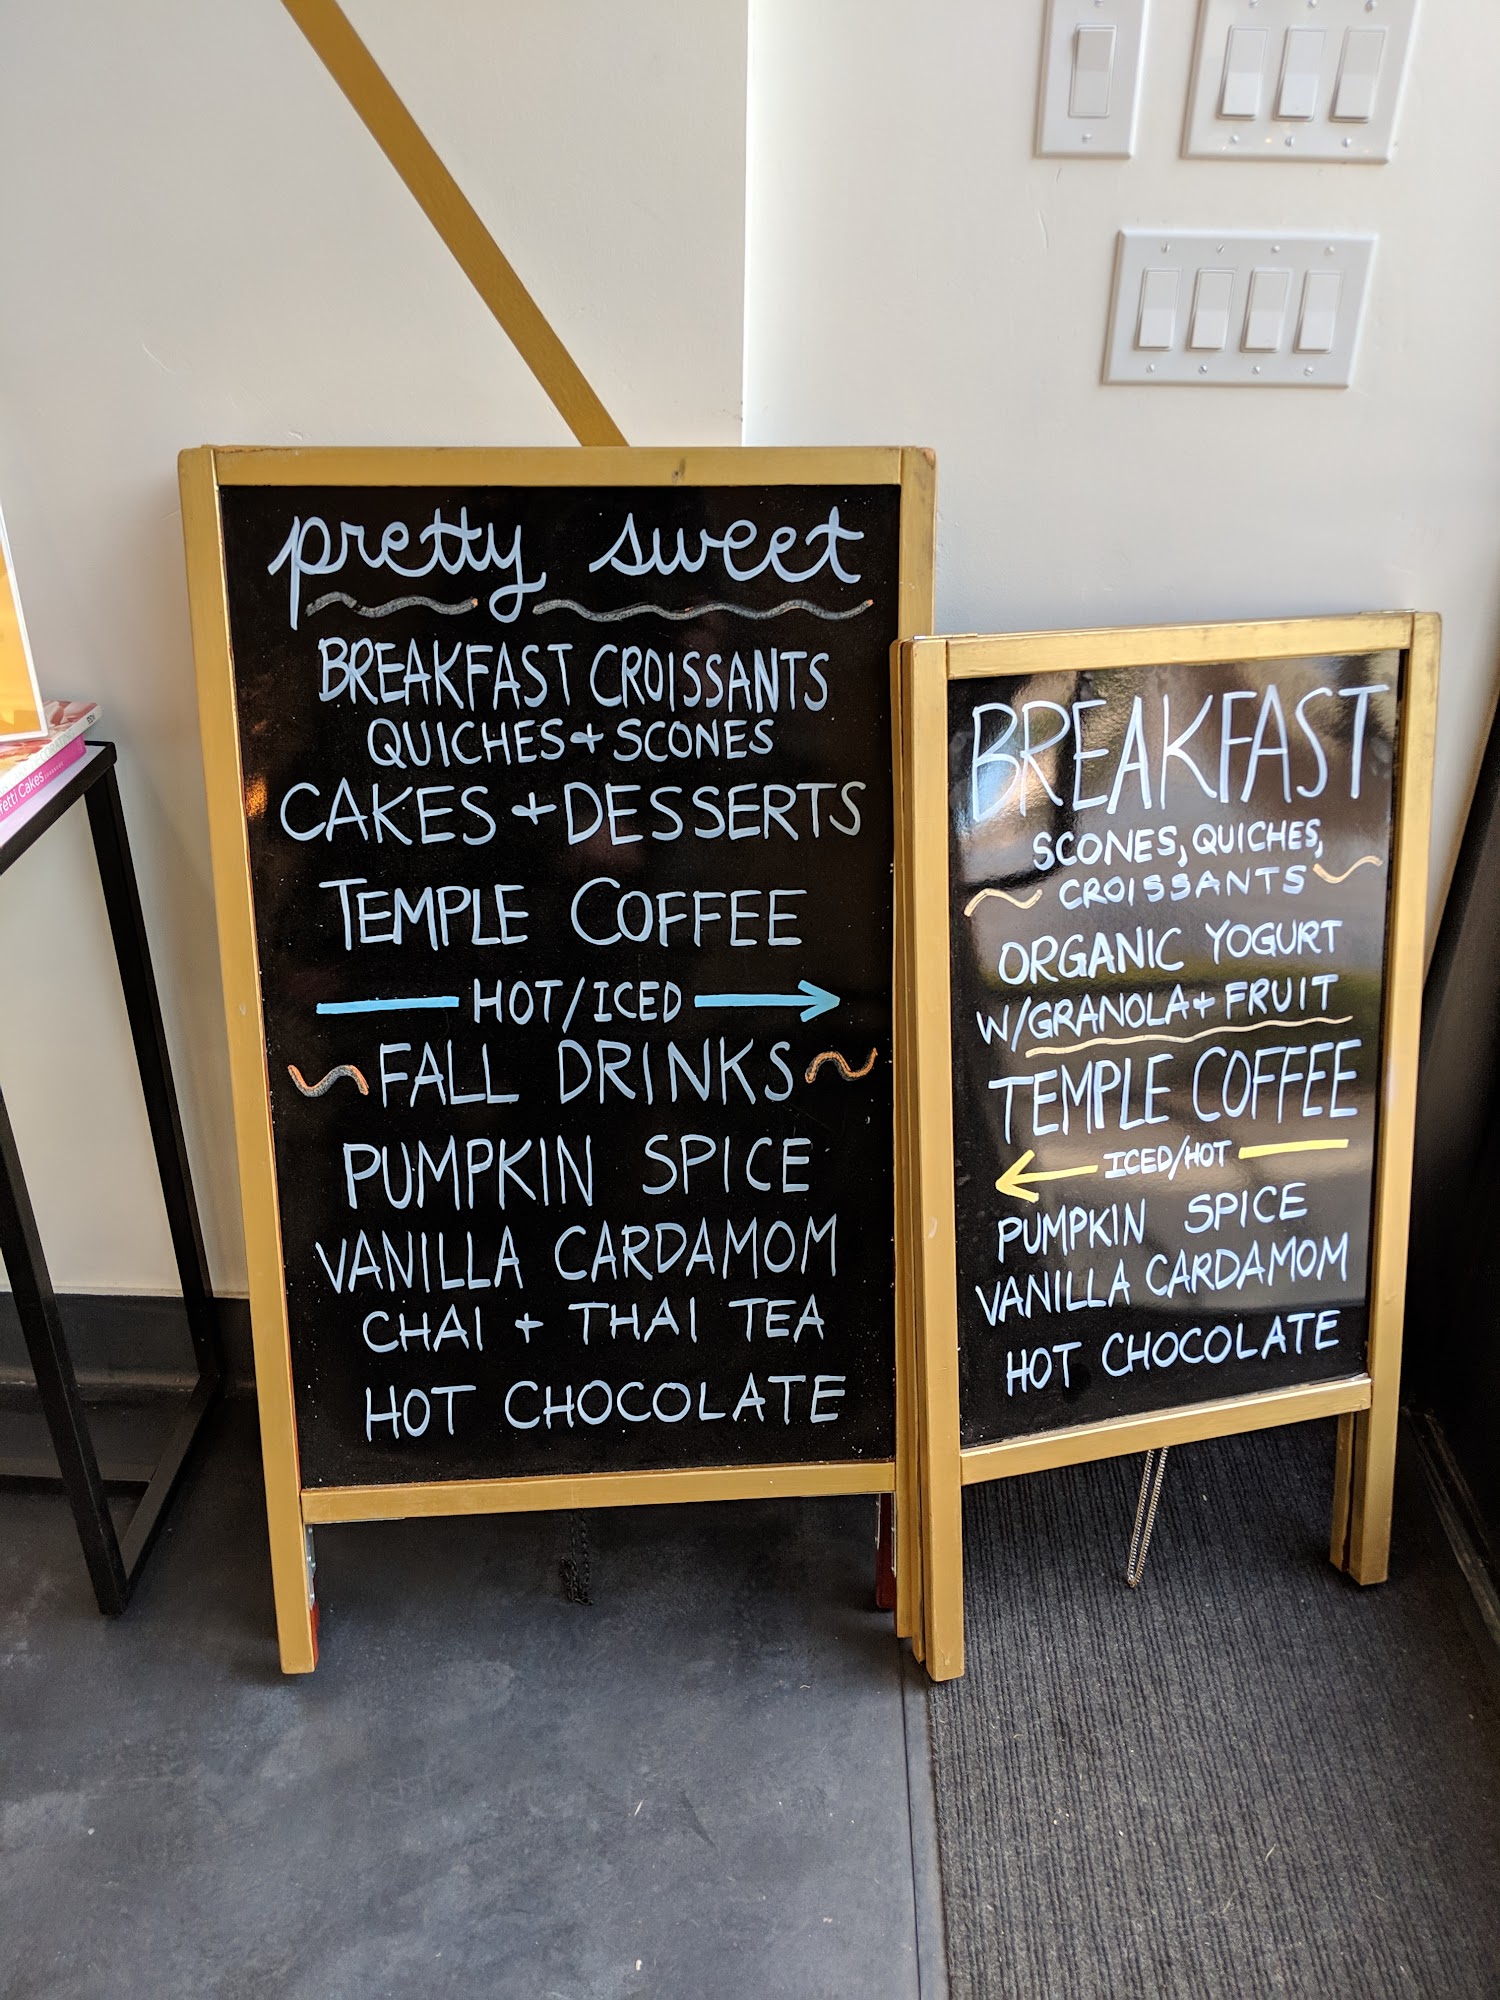 pretty sweet
BREAKFAST CROISSANTS
QUICHES + SCONES
CAKES + DESSERTS
TEMPLE COFFEE
HOT/ICED
FALL DRINKS
PUMPKIN SPICE
VANILLA CARDAMOM
CHAI + THAI TEA
HOT CHOCOLATE
BREAKFAST
SCONES, QUICHES,
CROISSANTS
ORGANIC YOGURT
W/GRANOLA + FRUIT
TEMPLE COFFEE
ICED/HOT
PUMPKIN SPICE
VANILLA CARDAMOM
HOT CHOCOLATE
Cakes